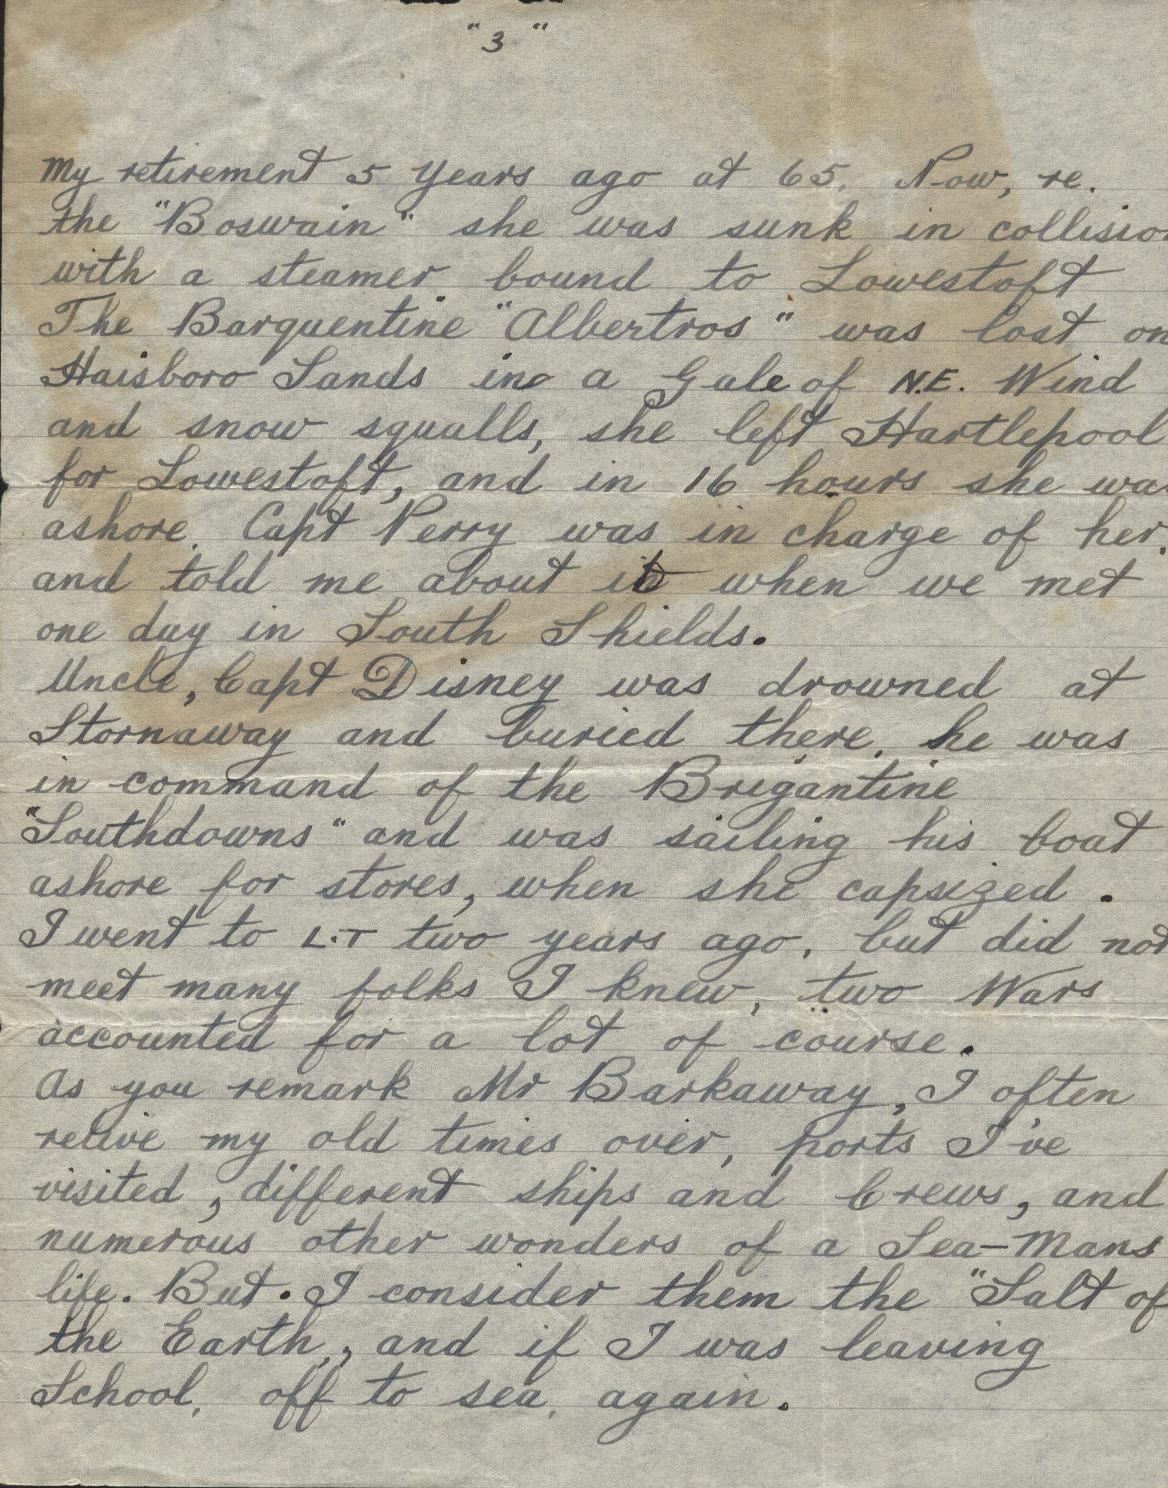 "3"
My retirement 5 years ago at 65. Now, re.
the "Boswain" she was sunk in collision
with a steamer bound to Lowestoft
The Barquentine "Albertros" was lost on
Haisboro Sands in a Gale of N.E. Wind
and snow squalls, she left Hartlepool
for Lowestoft, and in 16 hours she was
ashore. Capt Perry was in charge of her.
and told me about it when we met
one day in South Shields.
Uncle, Capt Disney was drowned at
Stornaway and buried there, he was
in command of the Brigantine
"Southdowns" and was sailing his boat
ashore for stores, when she capsized.
I went to L.T two years ago, but did not
meet many folks I knew, two Wars
accounted for a lot of course.
As you remark Mr Barkaway, I often
relive my old times over, ports I've
visited, different ships and Crews, and
numerous other wonders of a Sea-Mans
life. But. I consider them the "Salt of
the Earth, and if I was leaving
School, off to sea, again.